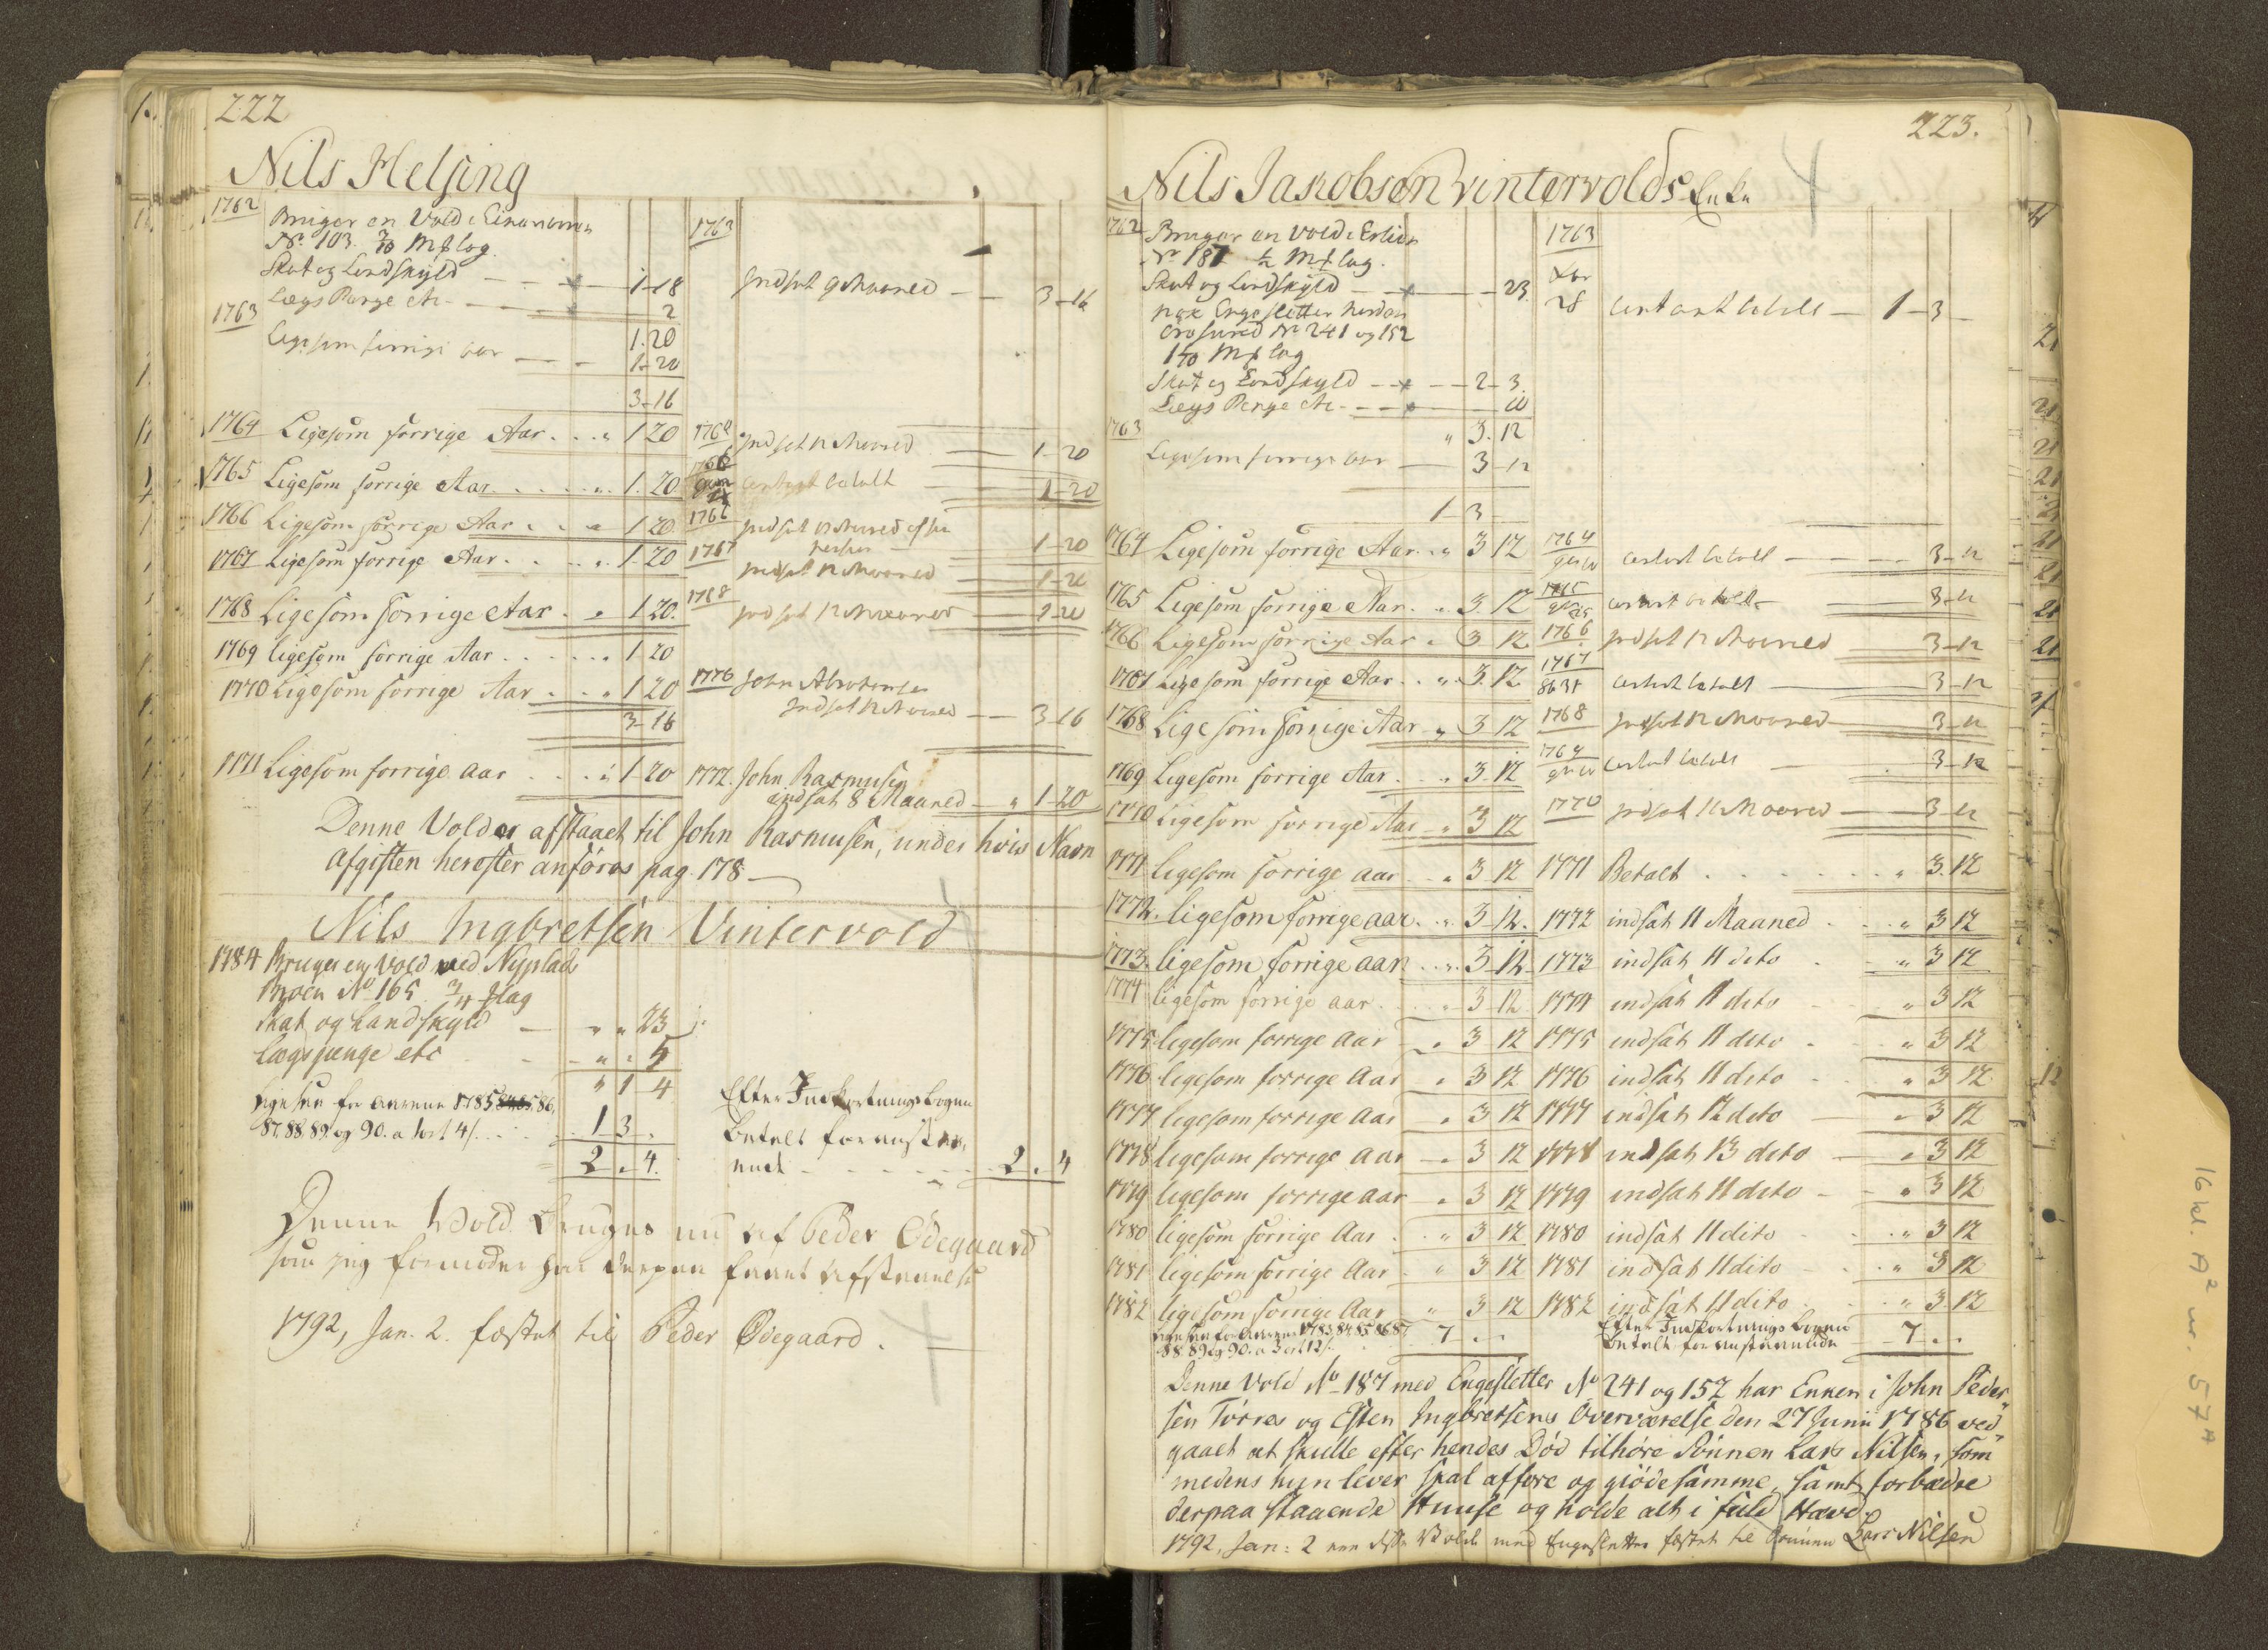 222
Nils Helsing
1762 Bruger en Vold i
No. 103. 3/10 Mk lag
Skat og Landskyld 1-18
Lægs Penge etc 2
1.20
1763 Ligesom forrige aar 1-20
3-16
1763 Indsat 9 Maaned 3-16
1764 Ligesom forrige Aar 1 20
indsat 12 Maaned 1-20
1765 Ligesom forrige Aar 1.20
contant betalt 1-20
1766 Ligesom forrige Aar 1 20
1766 indsat 12 Maaned 1-20
1767 Ligesom forrige Aar 1-20
1767 indsat 12 Maaned 1-20
1768 Ligesom forrige Aar 1 20.
1768 indsat 12 Maaned 1-20
1769 ligesom forrige Aar 1-20
1770 Ligesom forrige Aar 1 20
3-16
1770 John
Indsat 12 Maaned 3-16
1771 Ligesom forrige aar 1-20
1772. John Rasmusen
indsat 8 Maaned 1-20
Denne Vold er afstaaet til John Rasmusen, under hvis Navn
Afgiften herefter anföres pag. 178
Nils Ingbretsen Vintervold
1784 Bruger en Vold ved Nyplads
Broen No 165 3/4 lag
Skat og Landskyld 23
Lægspenge etc 5
1 4
ligesaa for Aarene 1785 86,
87, 88, 89 og 90. a 1 ort 4 s. 1 3
2 . 4.
Efter Indkortningsbogen
betalt foranstaa-
ende 2 . 4
Denne Vold bruges nu af Peder Ödegaard
som jeg formoder har derpaa faaet Afstaaelse
1792, Jan. 2. fæstet til Peder Ödegaard.
223.
Nils Jakobsen Vintervolds Enke
1762 Bruger en Vold i
No. 187 1/2 Mk lag.
Skat og Landskyld 23
nok Enge sletter
No 241 og 152
1 1/10 Mk lag
Skat og Landskyld 2-3.
Lægs Penge etc
3. 12
1763 Ligesom forrige aar 3-12
1-3
1763
28 contant betalt 1-3
1764 Ligesom forrige Aar 3 12 1764 contant betalt 3-12
1765 Ligesom forrige Aar 3. 12 1765 contant betalt 3-12
1766 Ligesom forrige Aar 3 12 1766 indsat 12 Maaned 3-12
1767 Ligesom forrige Aar 3. 12. 1767 contant betalt 3-12
1768 Ligesom forrige Aar 3 12 1768 indsat 12 Maaned 3-12
1769 Ligesom forrige Aar 3. 12 1769 contant betalt 3-12
1770 Ligesom forrige Aar 3 12 1770 indsat 12 Maaned 3-12
1771 ligesom forrige aar 3 12 1771 Betalt 3. 12
1772. ligesom forrige aar 3 12. 1772 indsat 11 Maaned 3 12
1773. ligesom forrige aar 3-12 1773 indsat 11 dito 3 12
1774 ligesom forrige aar 3-12 1774 indsat 11 dito 3 12
1775 ligesom forrige Aar 3 12 1775 indsat 11 dito 3 12
1776 ligesom forrige Aar 3 12 1776 indsat 11 dito 3 12
1777 ligesom forrige Aar 3 12 1777 indsat 12 dito 3 12
1778 ligesom forrige Aar 3 12 1778 indsat 13 dito 3 12
1779 ligesom forrige aar 3 12 1779 indsat 11 dito 3 12
1780 ligesom forrige Aar 3 12 1780 indsat 11 dito 3 12
1781 ligesom forrige Aar 3 12 1781 indsat 11 dito 3 12
1782 ligesom forrige Aar 3 12 1782 indsat 11 dito 3 12
ligesaa for Aarene 1783, 84, 85, 86, 87
88, 89 og 90. a 3 ort 12 s. 7
Efter Indkortnings bogen
betalt foranstaaende 7
Denne Vold No 187 med Engesletter No 241 og 152 har Enken i John Peder-
sen Törres og Esten Ingbretsens Overværelse den 27 Junii 1786 ved-
gaaet at skulle efter hendes Död tilhöre Sönnen Lars Nilsen, som
medens hun lever skal afföre og giöde samme, samt forbædre
derpaa staaende Huuse og holde alt i fuld Hævd
1792, Jan: 2 med Engesletter fæstet til Sönnen Lars Nilsen